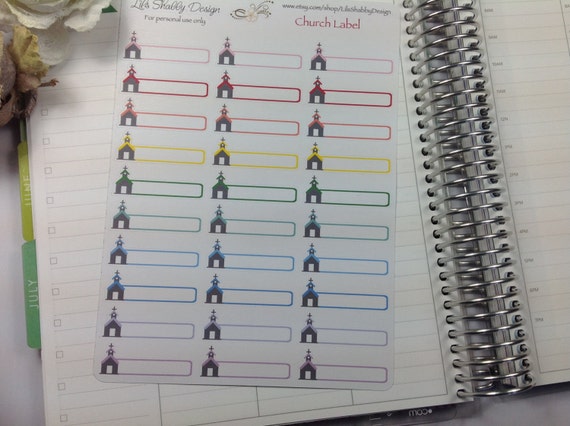 Lil's Shabby Design
For personal use only.
www.etsy.com/shop/LilsShabbyDesign
Church Label
JUNE
JULY